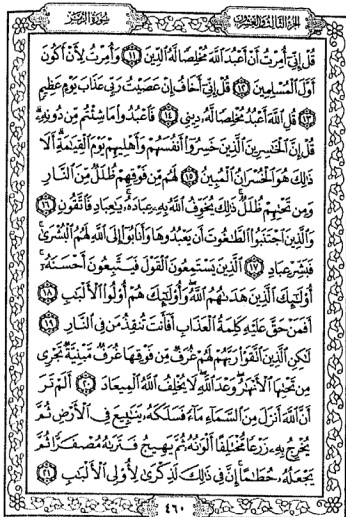 الجزء الثالث والعشرون سورة الزمر
قُلْ إِنِّيٓ أُمِرْتُ أَنْ أَعْبُدَ ٱللَّهَ مُخْلِصًا لَّهُ ٱلدِّينَ ١١ وَأُمِرْتُ لِأَنْ أَكُونَ
أَوَّلَ ٱلْمُسْلِمِينَ ١٢ قُلْ إِنِّيٓ أَخَافُ إِنْ عَصَيْتُ رَبِّي عَذَابَ يَوْمٍ عَظِيمٍ
١٣ قُلِ ٱللَّهَ أَعْبُدُ مُخْلِصًا لَّهُۥ دِينِي ١٤ فَٱعْبُدُوا۟ مَا شِئْتُم مِّن دُونِهِۦ
قُلْ إِنَّ ٱلْخَٰسِرِينَ ٱلَّذِينَ خَسِرُوٓا۟ أَنفُسَهُمْ وَأَهْلِيهِمْ يَوْمَ ٱلْقِيَٰمَةِ أَلَا
ذَٰلِكَ هُوَ ٱلْخُسْرَانُ ٱلْمُبِينُ ١٥ لَهُم مِّن فَوْقِهِمْ ظُلَلٌ مِّنَ ٱلنَّارِ
وَمِن تَحْتِهِمْ ظُلَلٌ ذَٰلِكَ يُخَوِّفُ ٱللَّهُ بِهِۦ عِبَادَهُۥ يَٰعِبَادِ فَٱتَّقُونِ ١٦
وَٱلَّذِينَ ٱجْتَنَبُوا۟ ٱلطَّٰغُوتَ أَن يَعْبُدُوهَا وَأَنَابُوٓا۟ إِلَى ٱللَّهِ لَهُمُ ٱلْبُشْرَىٰ
فَبَشِّرْ عِبَادِ ١٧ ٱلَّذِينَ يَسْتَمِعُونَ ٱلْقَوْلَ فَيَتَّبِعُونَ أَحْسَنَهُۥٓ
أُو۟لَٰٓئِكَ ٱلَّذِينَ هَدَىٰهُمُ ٱللَّهُ وَأُو۟لَٰٓئِكَ هُمْ أُو۟لُوا۟ ٱلْأَلْبَٰبِ ١٨
أَفَمَنْ حَقَّ عَلَيْهِ كَلِمَةُ ٱلْعَذَابِ أَفَأَنتَ تُنقِذُ مَن فِي ٱلنَّارِ ١٩
لَٰكِنِ ٱلَّذِينَ ٱتَّقَوْا۟ رَبَّهُمْ لَهُمْ غُرَفٌ مِّن فَوْقِهَا غُرَفٌ مَّبْنِيَّةٌ تَجْرِي
مِن تَحْتِهَا ٱلْأَنْهَٰرُ وَعْدَ ٱللَّهِ لَا يُخْلِفُ ٱللَّهُ ٱلْمِيعَادَ ٢٠ أَلَمْ تَرَ
أَنَّ ٱللَّهَ أَنزَلَ مِنَ ٱلسَّمَآءِ مَآءً فَسَلَكَهُۥ يَنَٰبِيعَ فِي ٱلْأَرْضِ ثُمَّ
يُخْرِجُ بِهِۦ زَرْعًا مُّخْتَلِفًا أَلْوَٰنُهُۥ ثُمَّ يَهِيجُ فَتَرَىٰهُ مُصْفَرًّا ثُمَّ
يَجْعَلُهُۥ حُطَٰمًا إِنَّ فِي ذَٰلِكَ لَذِكْرَىٰ لِأُو۟لِي ٱلْأَلْبَٰبِ ٢١
٤٦٠